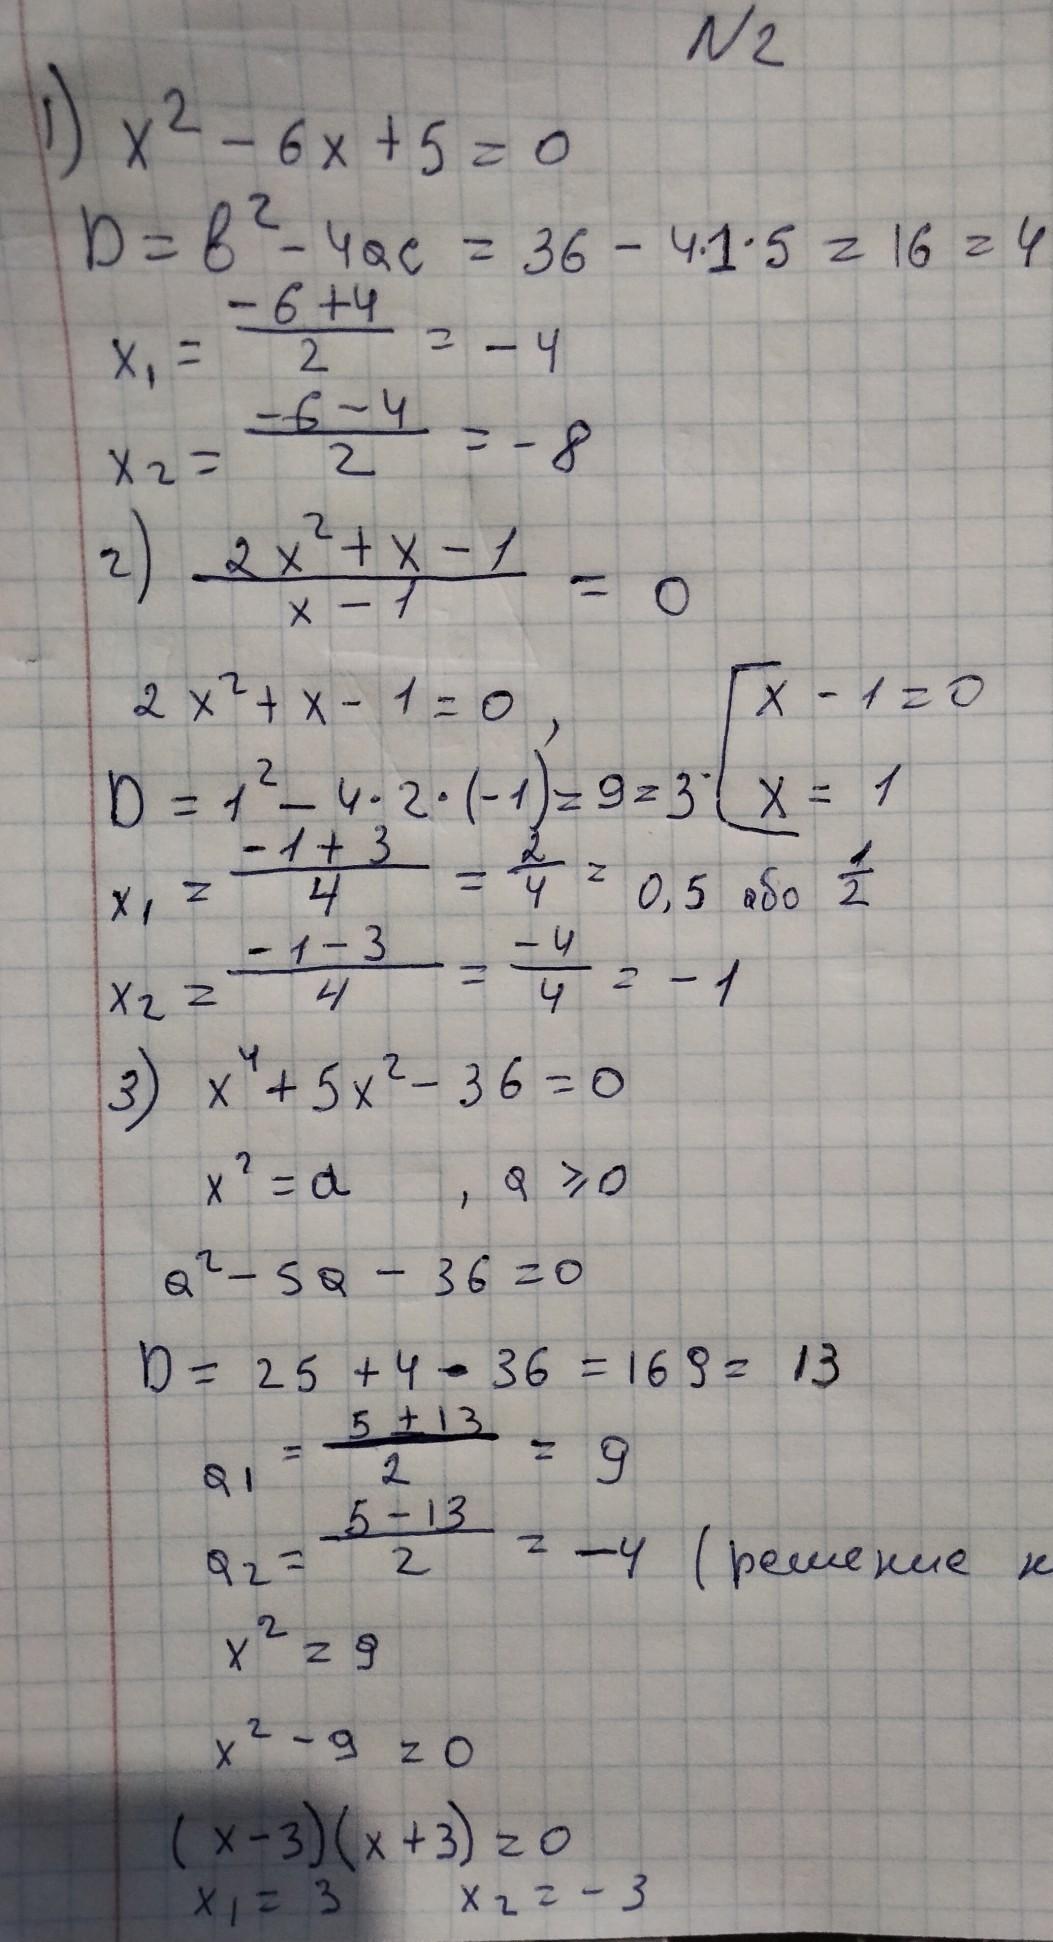 N2
1) x² - 6x + 5 = 0
D = b² - 4ac = 36 - 4·1·5 = 16 = 4
x₁ = (-6+4)/2 = -4
x₂ = (-6-4)/2 = -8
2) (2x² + x - 1)/(x - 1) = 0
2x² + x - 1 = 0, [x - 1 = 0
D = 1² - 4·2·(-1) = 9 = 3 x = 1
x₁ = (-1+3)/4 = 2/4 = 0,5 або 1/2
x₂ = (-1-3)/4 = -4/4 = -1
3) x⁴ + 5x² - 36 = 0
x² = a , a ⩾ 0
a² - 5a - 36 = 0
D = 25 + 4 · 36 = 169 = 13
a₁ = (5±13)/2 = 9
a₂ = (5-13)/2 = -4 (решение
x² = 9
x² - 9 = 0
(x-3)(x+3) = 0
x₁ = 3 x₂ = -3